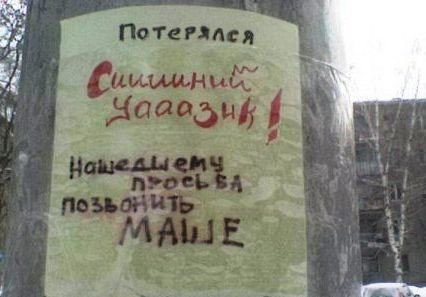 Потерялся
Сииииний
уаааЗик!
Нашедшему
просьба
позвонить
МАШЕ